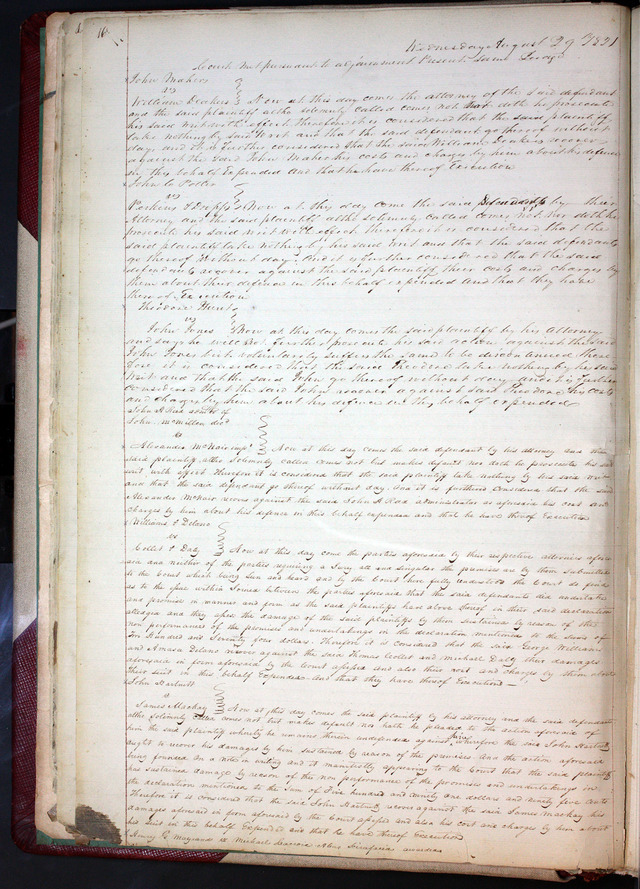 16
Wednesday August 29 1821
Court met pursuant to adjournment Present same Judge
John Maher
vs
William Deakers Now at this day comes the attorney of the said defendant
and the said plaintiff altho solemnly called comes not nor doth he prosecute
his said writ with effect therefore it is considered that the said plaintiff
take nothing by said Writ and that the said defendant go thereof without
day and it is further considered that the said William Deakers recover
against the said John Maher his costs and charges by him about his defence
in this behalf Expended and that he have thereof Execution
John C Potter
vs
Now at this day come the said Defendants by their
Attorney and the said plaintiff altho solemnly called comes not nor doth he
prosecute his said writ with effect therefore it is considered that the
said plaintiff take nothing by his said writ and that the said defendants
go thereof without day and it is further considered that the said
defendants recover against the said plaintiff their costs and charges by
them about their defence in this behalf expended and that they have
thereof Execution
Theodore Hunt
vs
John Jones Now at this day comes the said plaintiff by his Attorney
and says he will not further prosecute his said action against the said
John Jones but voluntarily suffers the same to be discontinued there
fore it is considered that the said Theodore take nothing by his said
writ and that the said John go thereof without day and it is further
considered that the said John recover against said Theodore his costs
and charges by him about his defence in this behalf expended
John A Rice
John McMillen decd
vs
Alexander McNair Now at this day comes the said defendant by his attorney and the
said plaintiff altho Solemnly called comes not but makes default nor doth he prosecute his said
writ with effect therefore it is considered that the said plaintiff take nothing by his said writ
and that the said defendant go thereof without day and it is further considered that the said
Alexander McNair recover against the said John A administrator as aforesaid his cost and
charges by him about his defence in this behalf expended and that he have thereof Execution
Williams & Delano
vs
Collet & Daly Now at this day come the parties aforesaid by their respective attornies afore
said and neither of the parties requiring a Jury all and singular the premises are by them submitted
to the Court which being Seen and heard and by the Court here fully understood the Court do find
as to the issue within Joined between the parties aforesaid that the said defendants did undertake
and promise in manner and form as the said plaintiffs have above thereof in their said declaration
alledged and they assess the damage of the said plaintiffs by them sustained by reason of the
non performance of the promises and undertakings in the declaration mentioned to the sum of
Hundred and Seventy four dollars Therefore it is considered that the said George Williams
and Amasa Delano recover against the said Thomas Collet and Michael Daly their damages
aforesaid in form aforesaid by the Court assessed and also their cost and charges by them about
their suit in this behalf Expended And that they have thereof Execution
John Hartnett
vs
James Mackay Now at this day comes the said plaintiff by his attorney and the said defendant
altho Solemnly called comes not but makes default nor hath he pleaded to the action aforesaid of
him the said plaintiff whereby he remains therein undefended against him wherefore the said John Hartnett
ought to recover his damages by him sustained by reason of the premises And the action aforesaid
being founded on a note in writing and it manifestly appearing to the Court that the said plaintiff
has sustained damage by reason of the non performance of the promises and undertakings in
the declaration mentioned to the Sum of Five hundred and ninety six dollars and ninety five cents
Therefore it is considered that the said John Hartnett recover against the said James Mackay his
damages aforesaid in form aforesaid by the Court assessed and also his cost and charges by him about
his suit in this behalf Expended and that he have thereof Execution